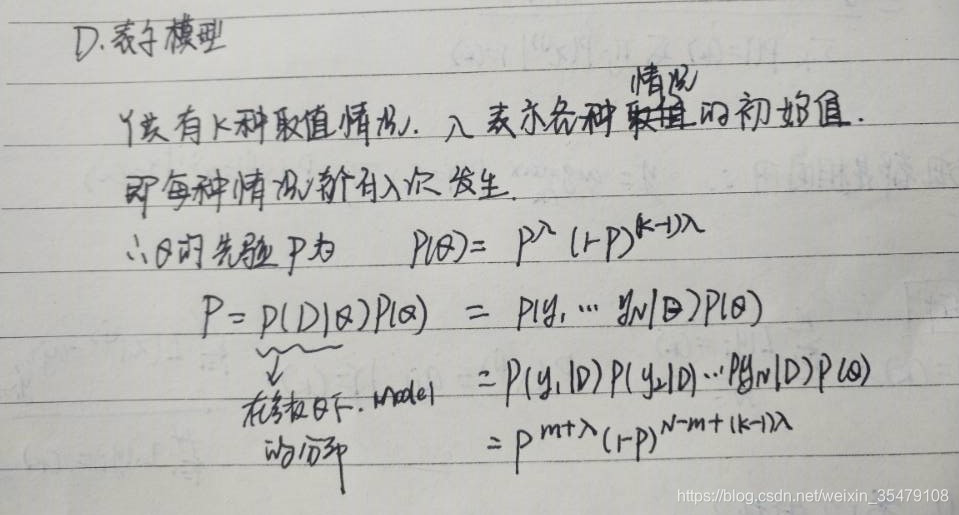 D. 表示模型
Y共有K种取值情况. λ 表示各种情况的初始值.
即每种情况都有λ次发生.
∴θ的先验P为 P(θ)= P^λ (1-P)^(k-1)λ
P = P(D|θ)P(θ) = P(y₁ ··· y_N|θ)P(θ)
= P(y₁|D)P(y₂|D)···P(y_N|D)P(θ)
在参数θ下. model
的分布
= P^(m+λ) (1-P)^(N-m+(k-1)λ)
https://blog.csdn.net/weixin_35479108